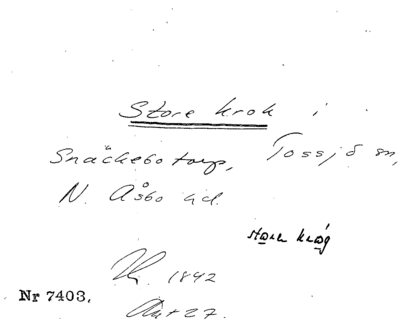 Store krok i
Snäckebo torp, Tossjö sn,
N. Åsbo hd.
storə krôg
1842
Nr 7403.
27.